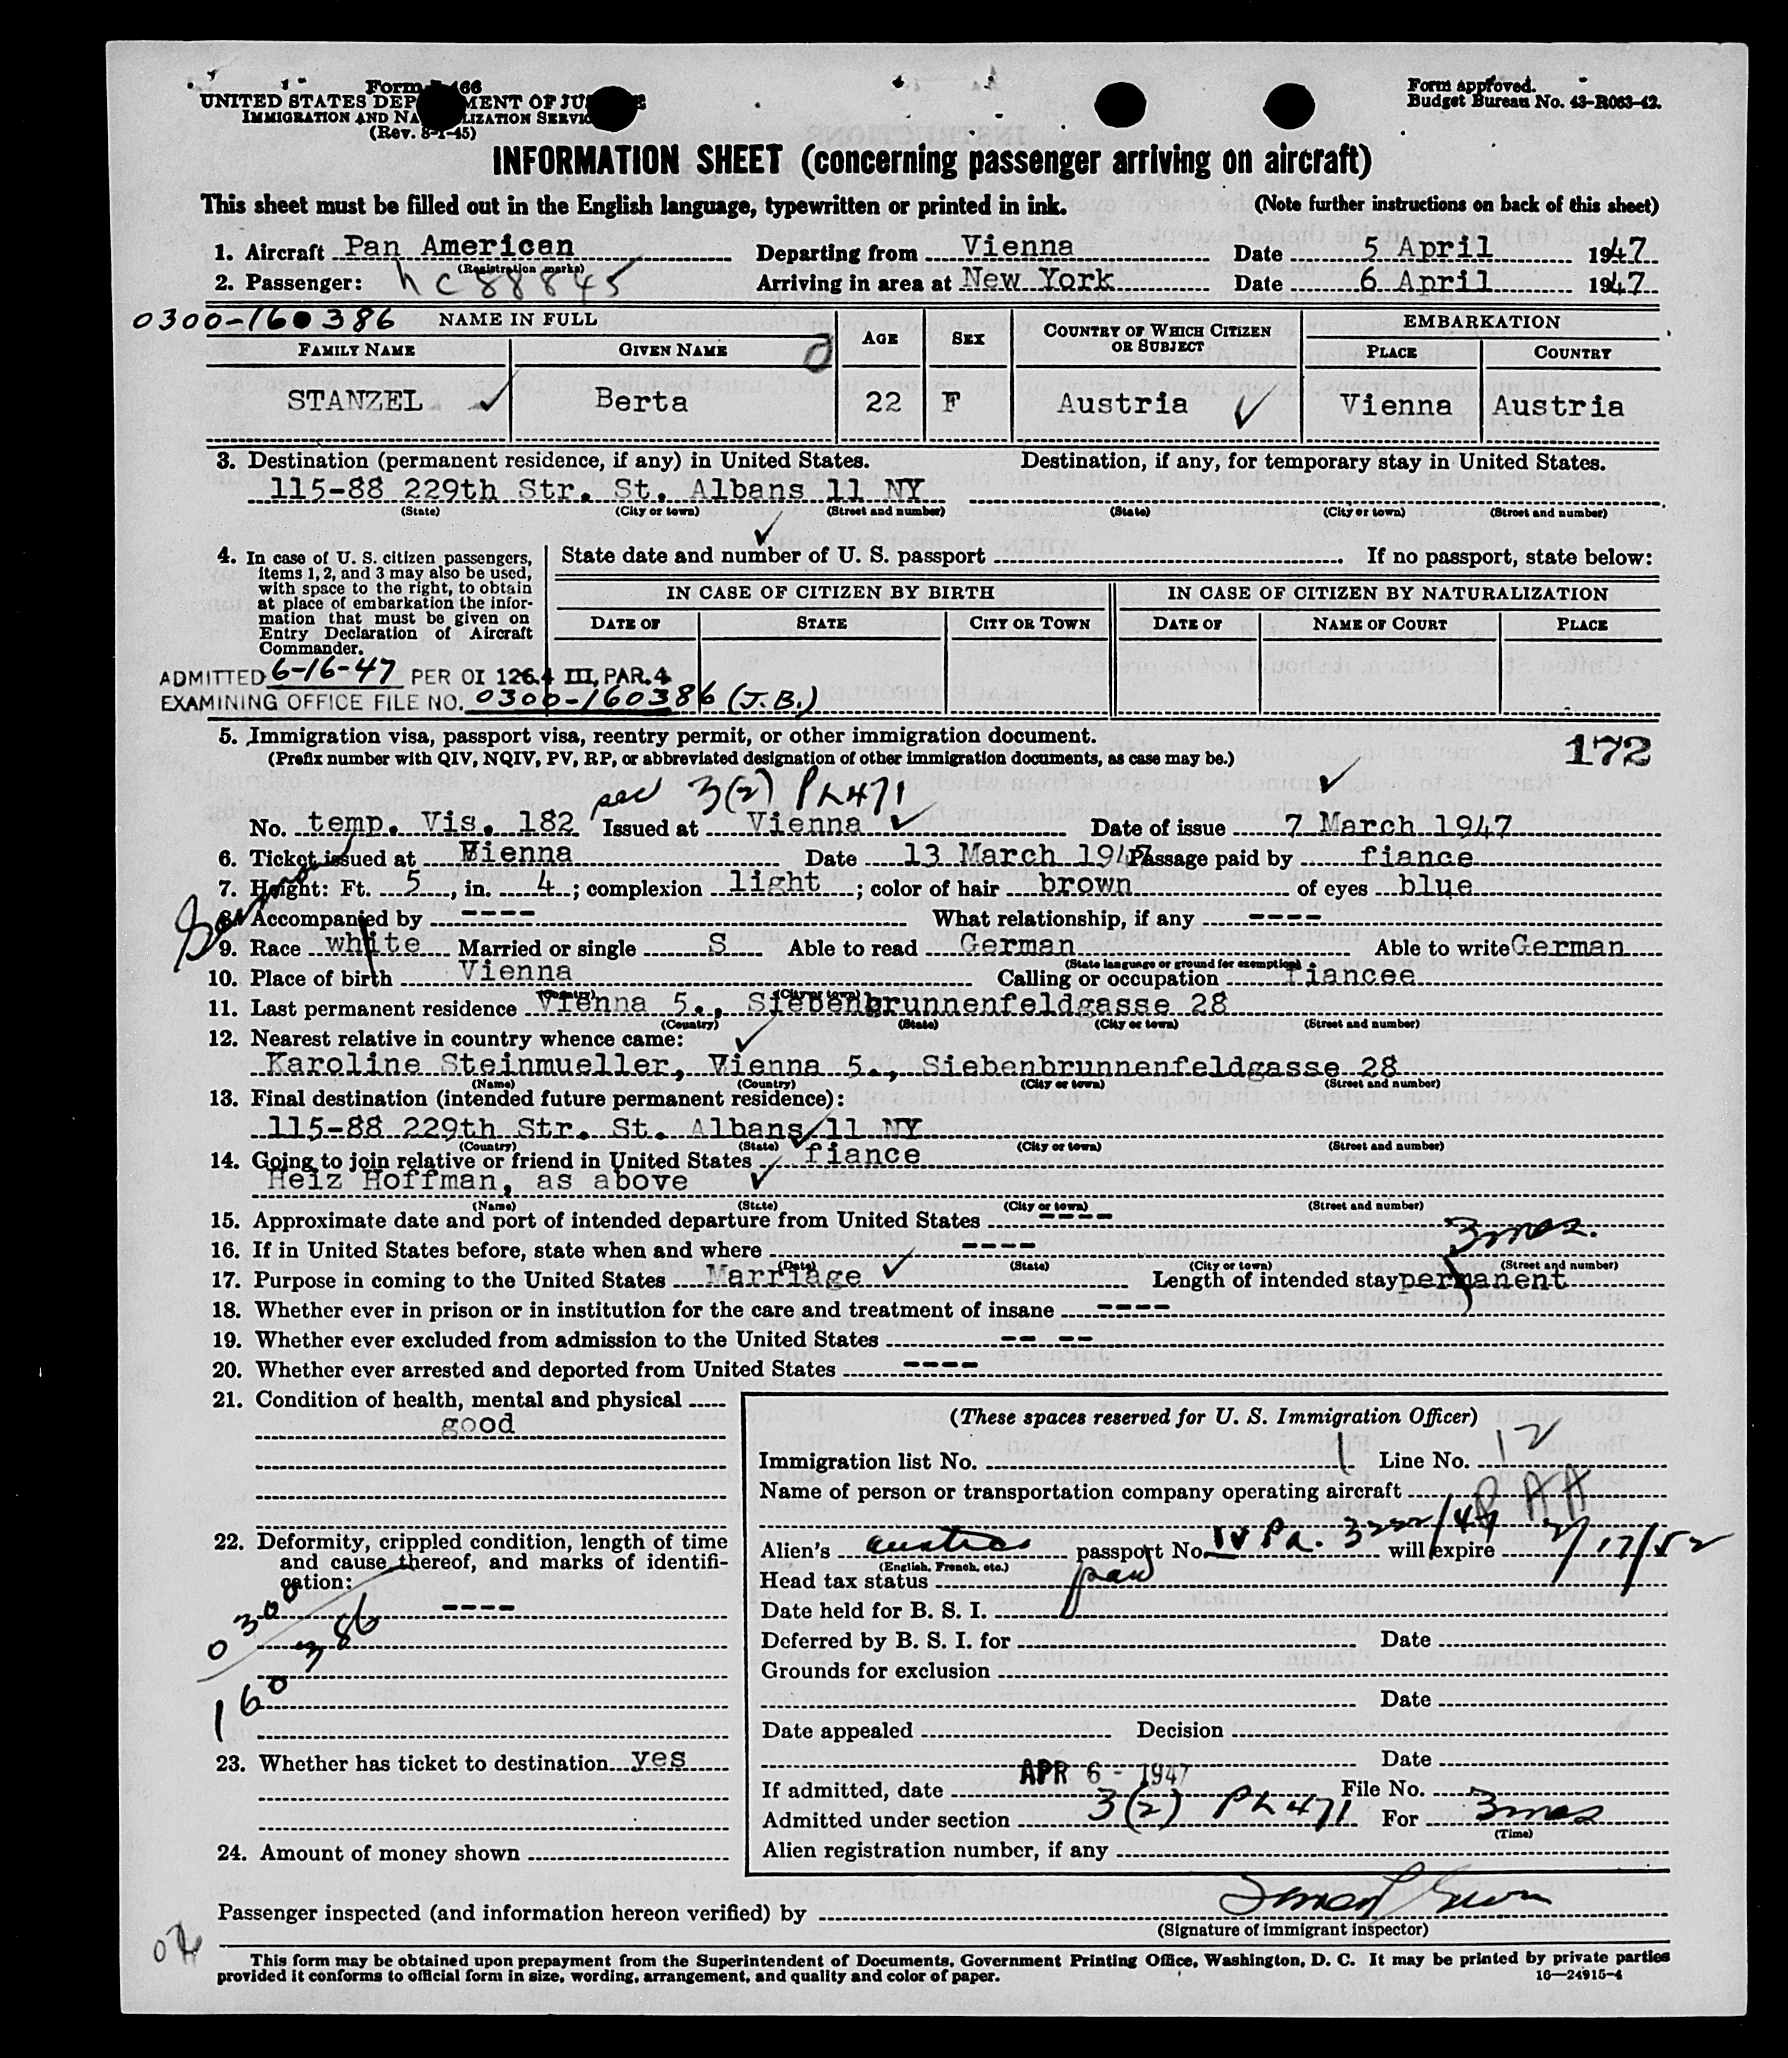 Form 466
UNITED STATES DEP MENT OF JU
IMMIGRATION AND NA LIZATION SERVIC
(Rev. 8-1-45)
Form approved.
Budget Bureau No. 43-R063-42.
INFORMATION SHEET (concerning passenger arriving on aircraft)
This sheet must be filled out in the English language, typewritten or printed in ink. (Note further instructions on back of this sheet)
1. Aircraft Pan American Departing from Vienna Date 5 April 1947
(Registration marks)
2. Passenger: NC 88845 Arriving in area at New York Date 6 April 1947
0300-160386 NAME IN FULL AGE SEX COUNTRY OF WHICH CITIZEN OR SUBJECT EMBARKATION
FAMILY NAME GIVEN NAME PLACE COUNTRY
STANZEL Berta 22 F Austria Vienna Austria
3. Destination (permanent residence, if any) in United States. Destination, if any, for temporary stay in United States.
115-88 229th Str. St. Albans 11 NY
(State) (City or town) (Street and number) (State) (City or town) (Street and number)
4. In case of U. S. citizen passengers, items 1, 2, and 3 may also be used, with space to the right, to obtain at place of embarkation the information that must be given on Entry Declaration of Aircraft Commander.
State date and number of U. S. passport If no passport, state below:
IN CASE OF CITIZEN BY BIRTH IN CASE OF CITIZEN BY NATURALIZATION
DATE OF STATE CITY OR TOWN DATE OF NAME OF COURT PLACE
ADMITTED 6-16-47 PER OI 126.4 III, PAR. 4
EXAMINING OFFICE FILE NO. 0300-160386 (J.B.)
5. Immigration visa, passport visa, reentry permit, or other immigration document. 172
(Prefix number with QIV, NQIV, PV, RP, or abbreviated designation of other immigration documents, as case may be.)
sec 3(2) PL471
No. temp. Vis. 182 Issued at Vienna Date of issue 7 March 1947
6. Ticket issued at Vienna Date 13 March 1947 Passage paid by fiance
7. Height: Ft. 5, in. 4; complexion light; color of hair brown of eyes blue
8. Accompanied by ---- What relationship, if any ----
German
9. Race white Married or single S Able to read German Able to write German
(State language or ground for exemption)
10. Place of birth Vienna Calling or occupation fiancee
(Country) (City or town)
11. Last permanent residence Vienna 5., Siebenbrunnenfeldgasse 28
(Country) (State) (City or town) (Street and number)
12. Nearest relative in country whence came:
Karoline Steinmueller, Vienna 5., Siebenbrunnenfeldgasse 28
(Name) (Country) (City or town) (Street and number)
13. Final destination (intended future permanent residence):
115-88 229th Str. St. Albans 11 NY
(Country) (State) (City or town) (Street and number)
14. Going to join relative or friend in United States fiance
Heiz Hoffman, as above
(Name) (State) (City or town) (Street and number)
15. Approximate date and port of intended departure from United States ----
16. If in United States before, state when and where ---- 3 mos.
(Date) (State) (City or town) (Street and number)
17. Purpose in coming to the United States Marriage Length of intended stay permanent
18. Whether ever in prison or in institution for the care and treatment of insane ----
19. Whether ever excluded from admission to the United States -- --
20. Whether ever arrested and deported from United States ----
21. Condition of health, mental and physical
good
22. Deformity, crippled condition, length of time and cause thereof, and marks of identification:
----
0300
160386
23. Whether has ticket to destination yes
24. Amount of money shown
(These spaces reserved for U. S. Immigration Officer)
Immigration list No. 1 Line No. 12
Name of person or transportation company operating aircraft PAA
Alien's Austria passport No. IV Pa. 3222/47 will expire 2/17/52
(English, French, etc.)
Head tax status paid
Date held for B. S. I.
Deferred by B. S. I. for Date
Grounds for exclusion
Date
Date appealed Decision
Date
If admitted, date APR 6 - 1947 File No.
Admitted under section 3(2) PL 471 For 3 mos
(Time)
Alien registration number, if any
Passenger inspected (and information hereon verified) by
(Signature of immigrant inspector)
This form may be obtained upon prepayment from the Superintendent of Documents, Government Printing Office, Washington, D. C. It may be printed by private parties
provided it conforms to official form in size, wording, arrangement, and quality and color of paper. 16—24915-4